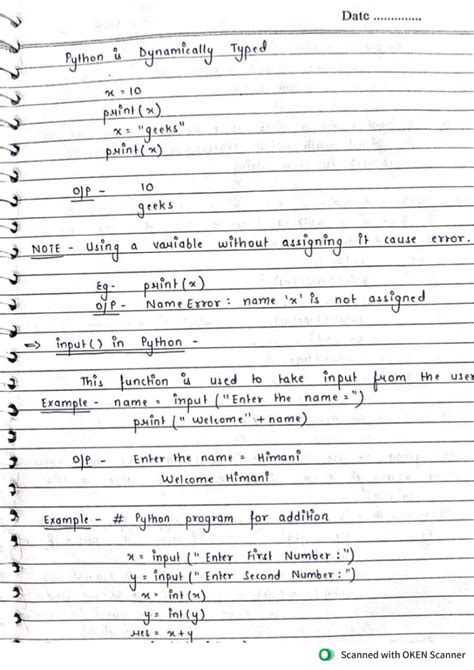 Date ..............
Python is Dynamically Typed
x = 10
print(x)
x = "geeks"
print(x)
O/P - 10
geeks
NOTE - Using a variable without assigning it cause error.
Eg- print(x)
O/P - Name Error : name 'x' is not assigned
=> input() in Python -
This function is used to take input from the user
Example - name = input ("Enter the name =")
print (" Welcome" + name)
O/P - Enter the name = Himani
Welcome Himani
Example - # Python program for addition
x = input (" Enter First Number :")
y = input (" Enter Second Number : ")
x = int(x)
y = int(y)
res = x+y
Scanned with OKEN Scanner